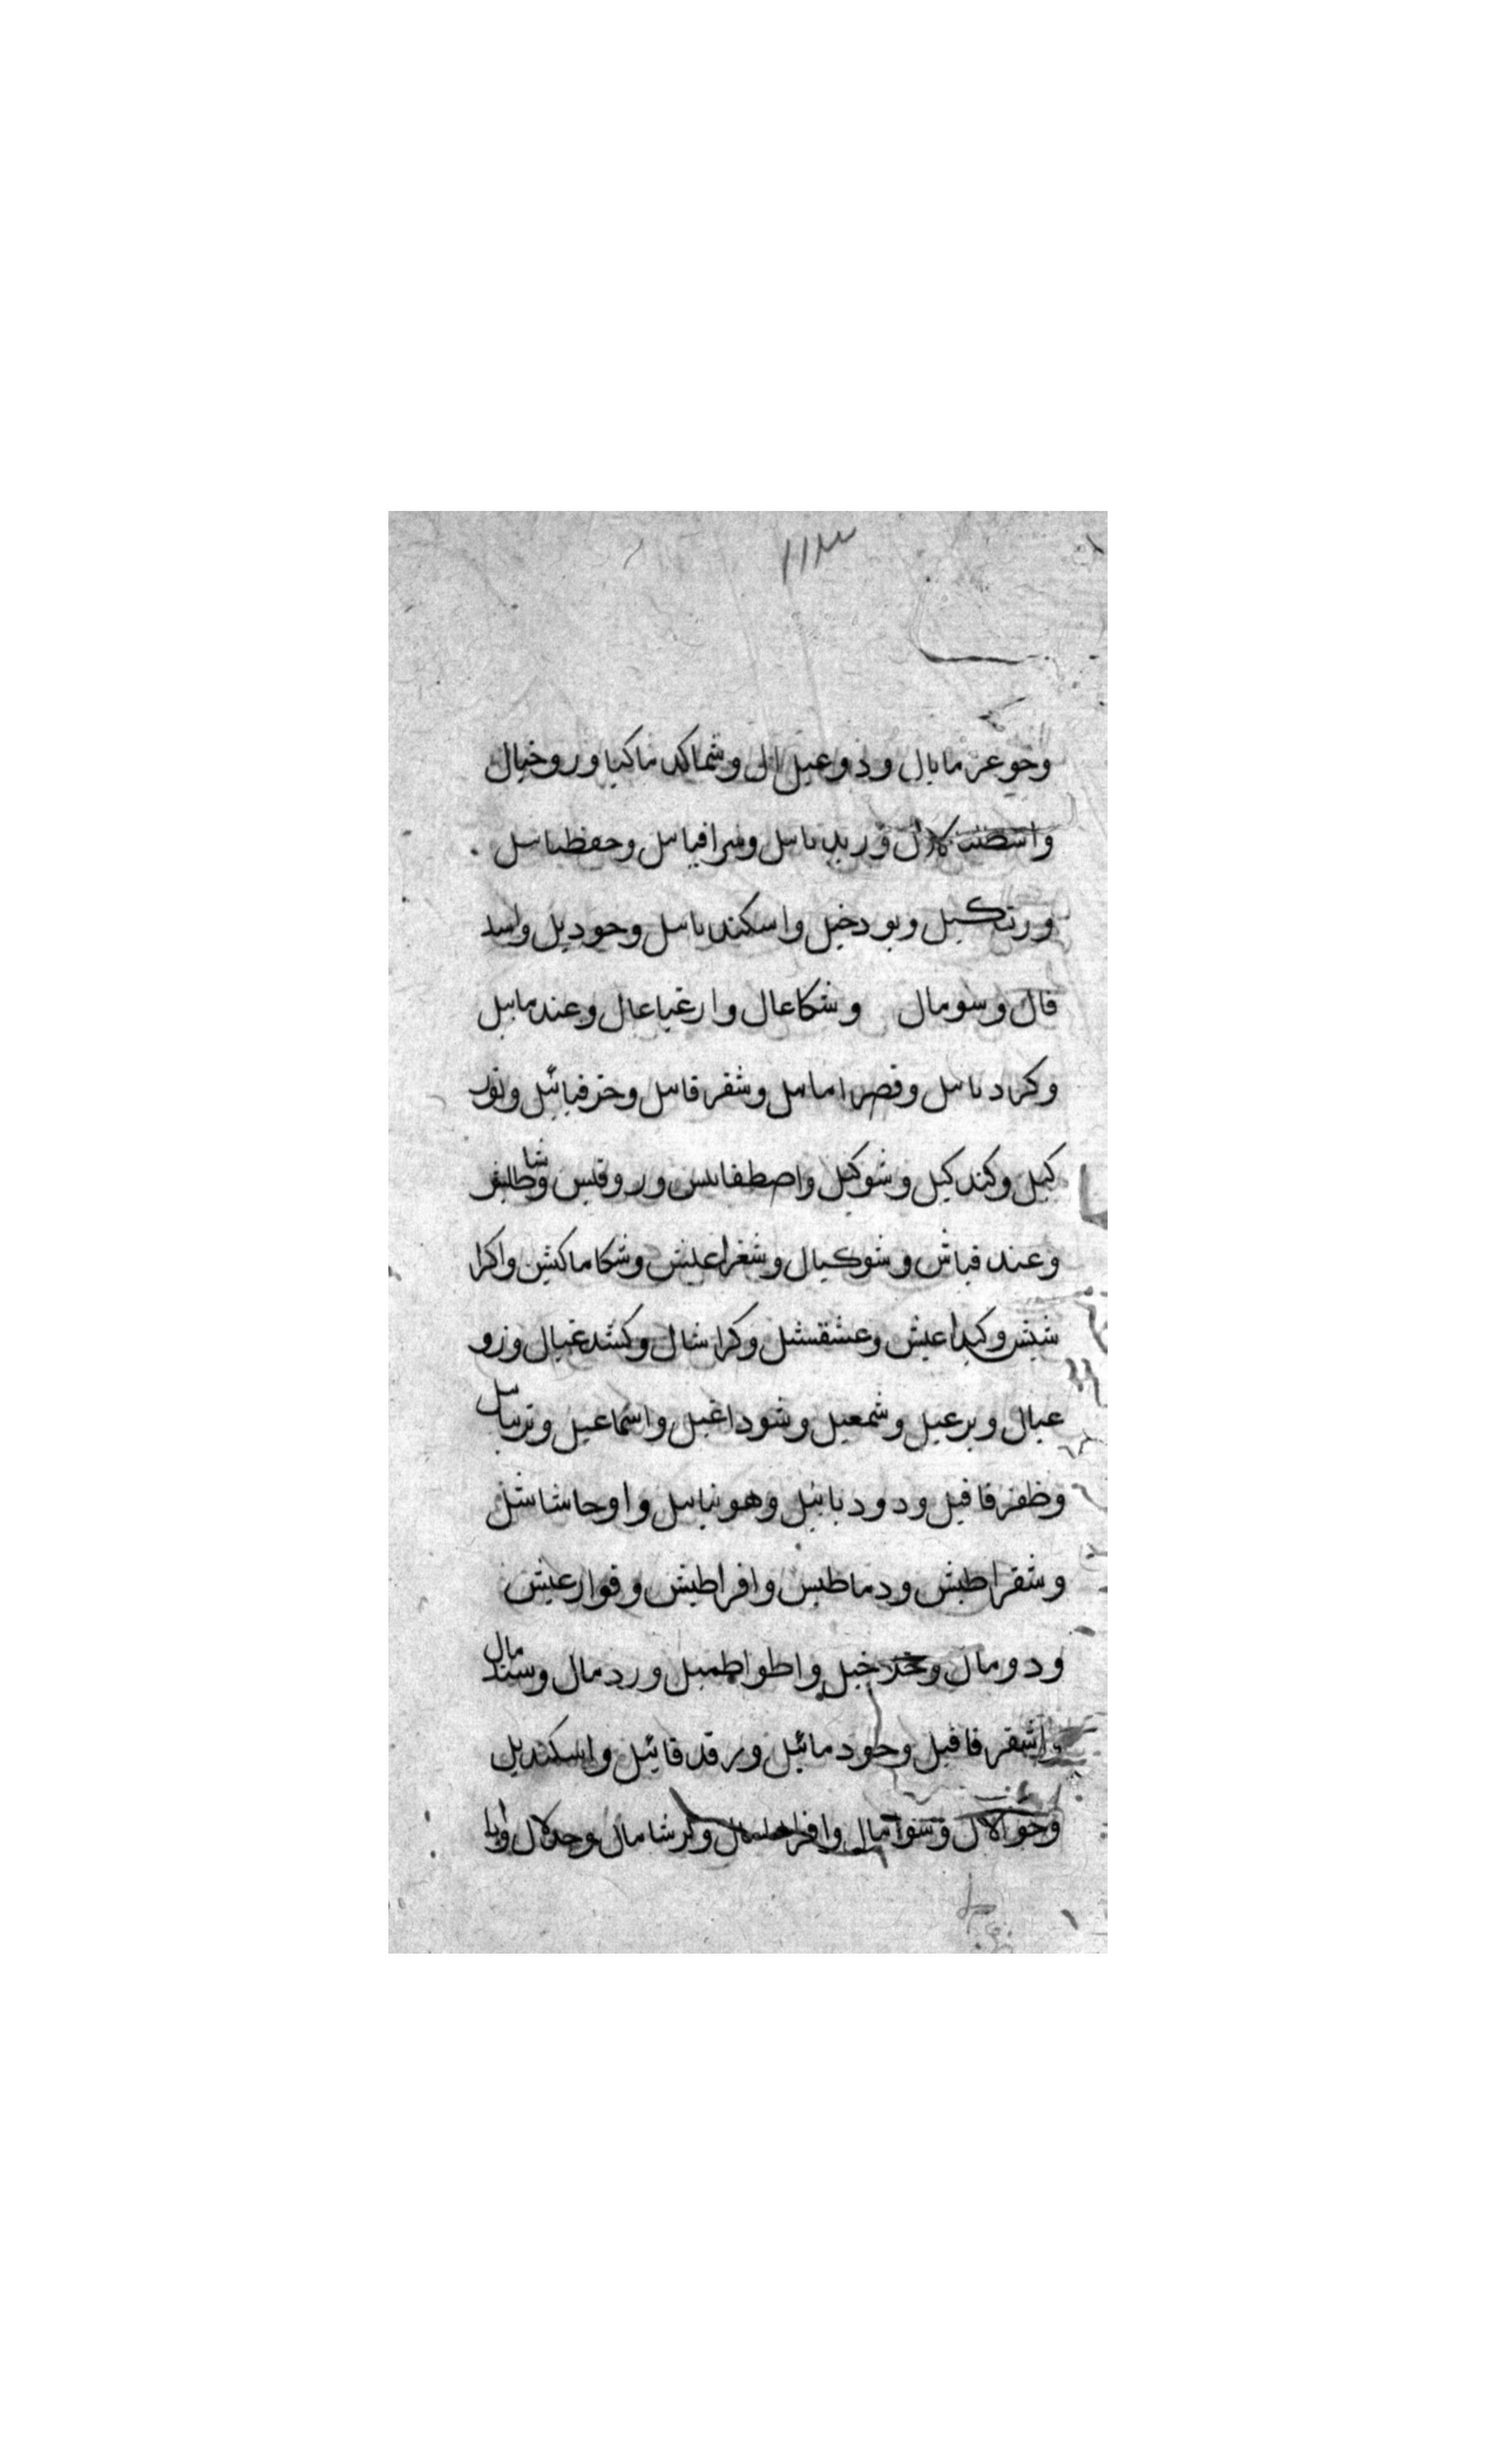 ١١٣
وحوعر مايال وذوعيل ال وشماكد ماكيا وروخيال
كلال وريدياسل وسرافياسل وحفظياسل
ورتكيل وبودخيل واسكندياسل وحوديل واسد
قال وسومال وشكاعال وارغياعال وعندماسل
وكردياسل وقصراماسل وشقرقاسل وحزفيائيل ونور
كيل وكندكيل وشوكيل واصطفانس وروقيس وشاطليش
وعندقياش وشوكيال وشغراعليش وشكاماكيش واكرا
شيش وكيداعيش وعشقشل وكراشال وكشدغيال وزو
عيال وبرعيل وشمعيل وشوداغيل واسماعيل وترياسل
وظفرقاقيل ودودبائيل وهونياسل واوحاشاشل
وشقراطيش ودماطيس وافراطيش وقوارعيش
ودومال خيل واطواطميل وردمال وسندمال
واشقرقاقيل وحودمائيل ورقدقائيل واسكنديل
وحولال وسوامال وكرشامال وحدلال وايا